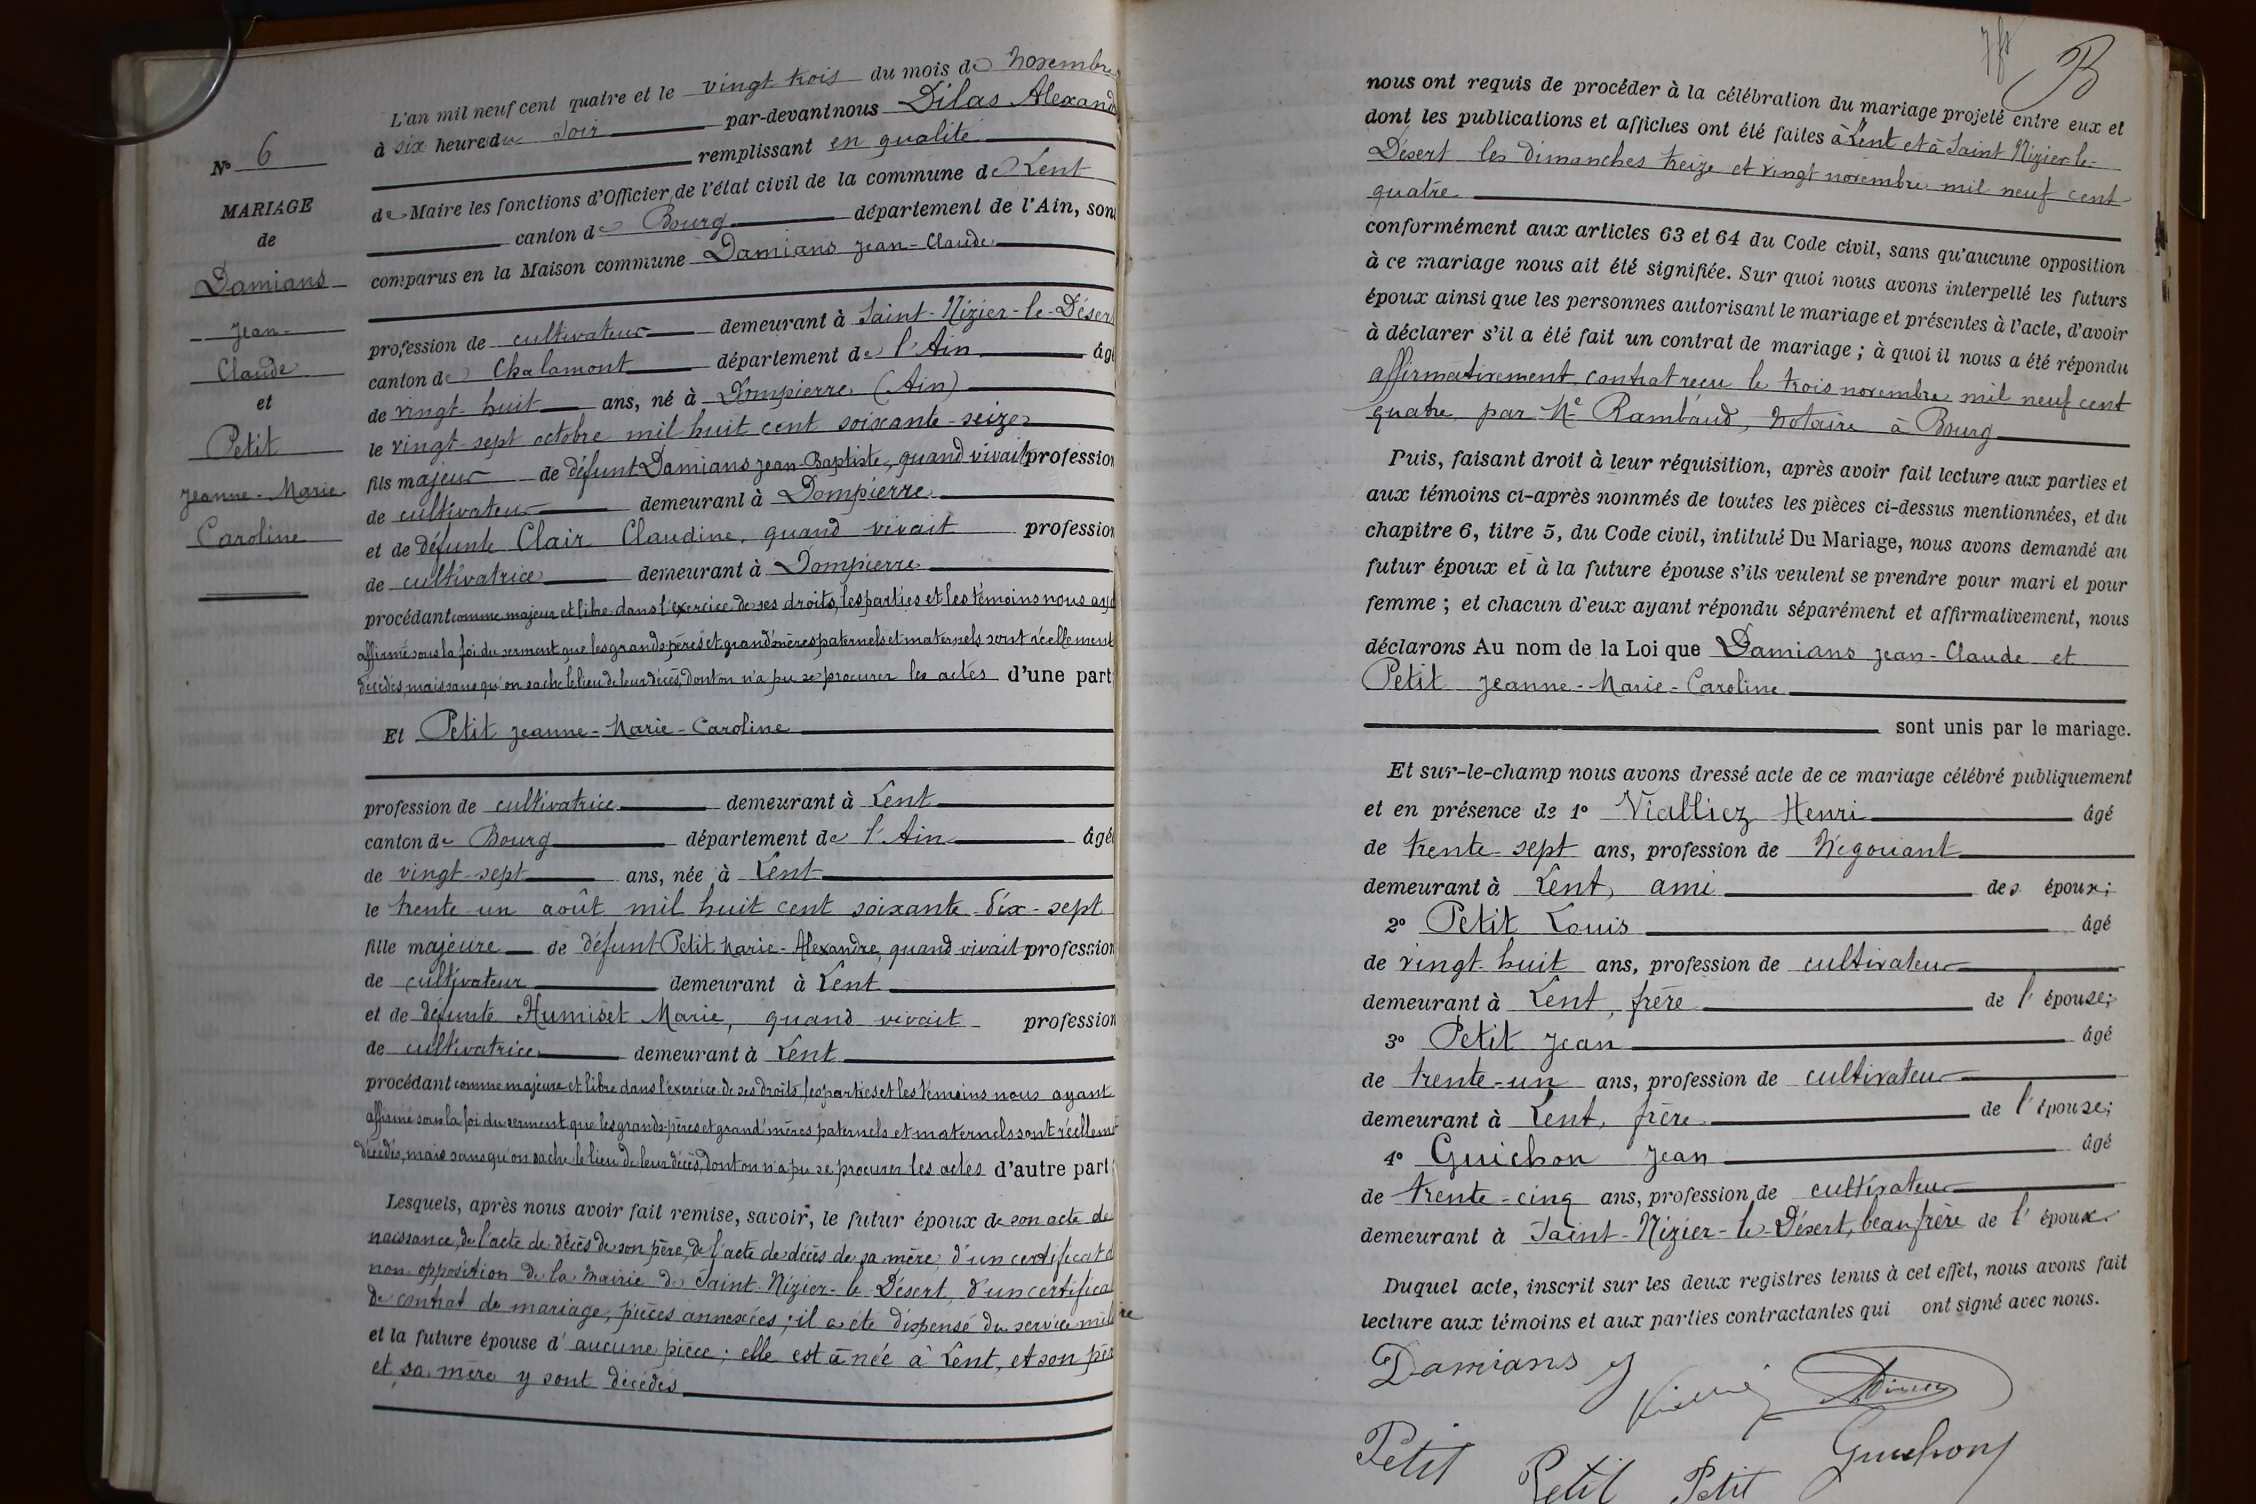 N° 6
MARIAGE
de
Damians
Jean-
Claude
et
Petit
Jeanne-Marie
Caroline
L'an mil neuf cent quatre et le vingt trois du mois de Novembre
à six heure du soir par-devant nous Dilas Alexand
remplissant en qualité
de Maire les fonctions d'Officier de l'état civil de la commune de Lent
canton de Bourg département de l'Ain, son
comparus en la Maison commune Damians Jean-Claude
profession de cultivateur demeurant à Saint-Nizier-le-Désert
canton de Chalamont département de l'Ain âgé
de vingt-huit ans, né à Dompierre (Ain)
le vingt-sept octobre mil huit cent soixante-seize
fils majeur de défunt Damians Jean-Baptiste, quand vivait profession
de cultivateur demeurant à Dompierre
et de défunte Clair Claudine, quand vivait profession
de cultivatrice demeurant à Dompierre
procédant comme majeur et libre dans l'exercice de ses droits, les parties et les témoins nous aya
affirmé sous la foi du serment que les grands-pères et grand'mères paternels et maternels sont réellement
décédés, mais sans qu'on sache le lieu de leur décès, dont on n'a pu se procurer les actes d'une part;
Et Petit Jeanne-Marie-Caroline
profession de cultivatrice demeurant à Lent
canton de Bourg département de l'Ain âgé
de vingt-sept ans, née à Lent
le trente-un août mil huit cent soixante-dix-sept
fille majeure de défunt Petit Marie-Alexandre, quand vivait profession
de cultivateur demeurant à Lent
et de défunte Humiset Marie, quand vivait profession
de cultivatrice demeurant à Lent
procédant comme majeure et libre dans l'exercice de ses droits, les parties et les témoins nous ayant
affirmé sous la foi du serment que les grands-pères et grand'mères paternels et maternels sont réellemt
décédés, mais sans qu'on sache le lieu de leur décès, dont on n'a pu se procurer les actes d'autre part;
Lesquels, après nous avoir fait remise, savoir, le futur époux de son acte de
naissance, de l'acte de décès de son père, de l'acte de décès de sa mère, d'un certificat d
non opposition de la Mairie de Saint-Nizier-le-Désert, d'un certificat
de contrat de mariage, pièces annexées; il a été dispensé du service militaire
et la future épouse d'aucune pièce; elle est née à Lent, et son père
et sa mère y sont décédés
nous ont requis de procéder à la célébration du mariage projeté entre eux et
dont les publications et affiches ont été faites à Lent et à Saint Nizier-le-
Désert les dimanches treize et vingt novembre mil neuf cent
quatre
conformément aux articles 63 et 64 du Code civil, sans qu'aucune opposition
à ce mariage nous ait été signifiée. Sur quoi nous avons interpellé les futurs
époux ainsi que les personnes autorisant le mariage et présentes à l'acte, d'avoir
à déclarer s'il a été fait un contrat de mariage; à quoi il nous a été répondu
affirmativement, contrat reçu le trois novembre mil neuf cent
quatre par Me Rambaud, Notaire à Bourg
Puis, faisant droit à leur réquisition, après avoir fait lecture aux parties et
aux témoins ci-après nommés de toutes les pièces ci-dessus mentionnées, et du
chapitre 6, titre 5, du Code civil, intitulé Du Mariage, nous avons demandé au
futur époux et à la future épouse s'ils veulent se prendre pour mari et pour
femme; et chacun d'eux ayant répondu séparément et affirmativement, nous
déclarons Au nom de la Loi que Damians Jean-Claude et
Petit Jeanne-Marie-Caroline
sont unis par le mariage.
Et sur-le-champ nous avons dressé acte de ce mariage célébré publiquement
et en présence de 1° Vialliez Henri âgé
de trente-sept ans, profession de Négociant
demeurant à Lent, ami des époux;
2° Petit Louis âgé
de vingt-huit ans, profession de cultivateur
demeurant à Lent, frère de l'épouse;
3° Petit Jean âgé
de trente-un ans, profession de cultivateur
demeurant à Lent, frère de l'épouse;
4° Guichon Jean âgé
de trente-cinq ans, profession de cultivateur
demeurant à Saint-Nizier-le-Désert, beau frère de l'époux.
Duquel acte, inscrit sur les deux registres tenus à cet effet, nous avons fait
lecture aux témoins et aux parties contractantes qui ont signé avec nous.
Damians J
Petit Petit Petit Guichon J